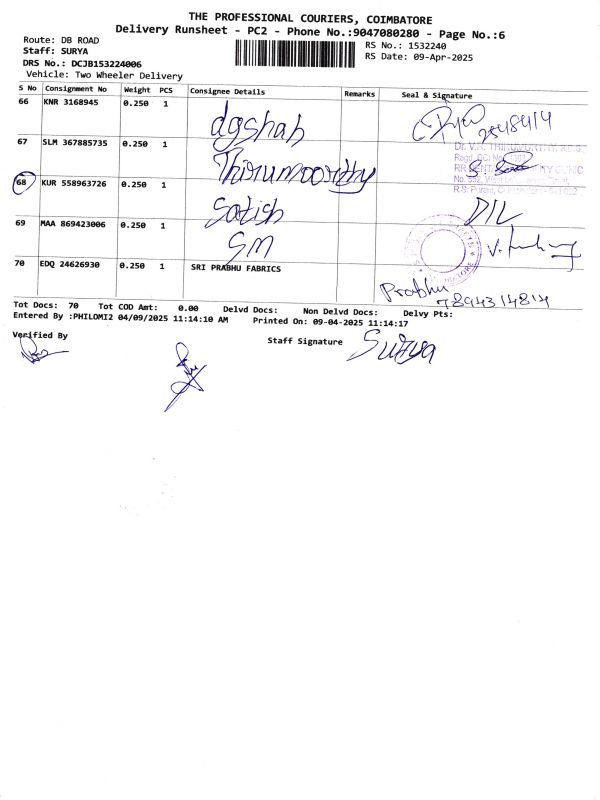 THE PROFESSIONAL COURIERS, COIMBATORE
Delivery Runsheet - PC2 - Phone No.:9047080280 - Page No.:6
Route: DB ROAD
RS No.: 1532240
Staff: SURYA
RS Date: 09-Apr-2025
DRS No.: DCJB153224006
Vehicle: Two Wheeler Delivery
S No Consignment No Weight PCS Consignee Details Remarks Seal & Signature
66 KNR 3168945 0.250 1 dgshah
67 SLM 367885735 0.250 1 Thirumoorthy
68 KUR 558963726 0.250 1 Satish DIL
69 MAA 869423006 0.250 1 SM
70 EDQ 24626930 0.250 1 SRI PRABHU FABRICS Prabhu
7894314814
Tot Docs: 70 Tot COD Amt: 0.00 Delvd Docs: Non Delvd Docs: Delvy Pts:
Entered By :PHILOMI2 04/09/2025 11:14:10 AM Printed On: 09-04-2025 11:14:17
Verified By
Staff Signature Surya